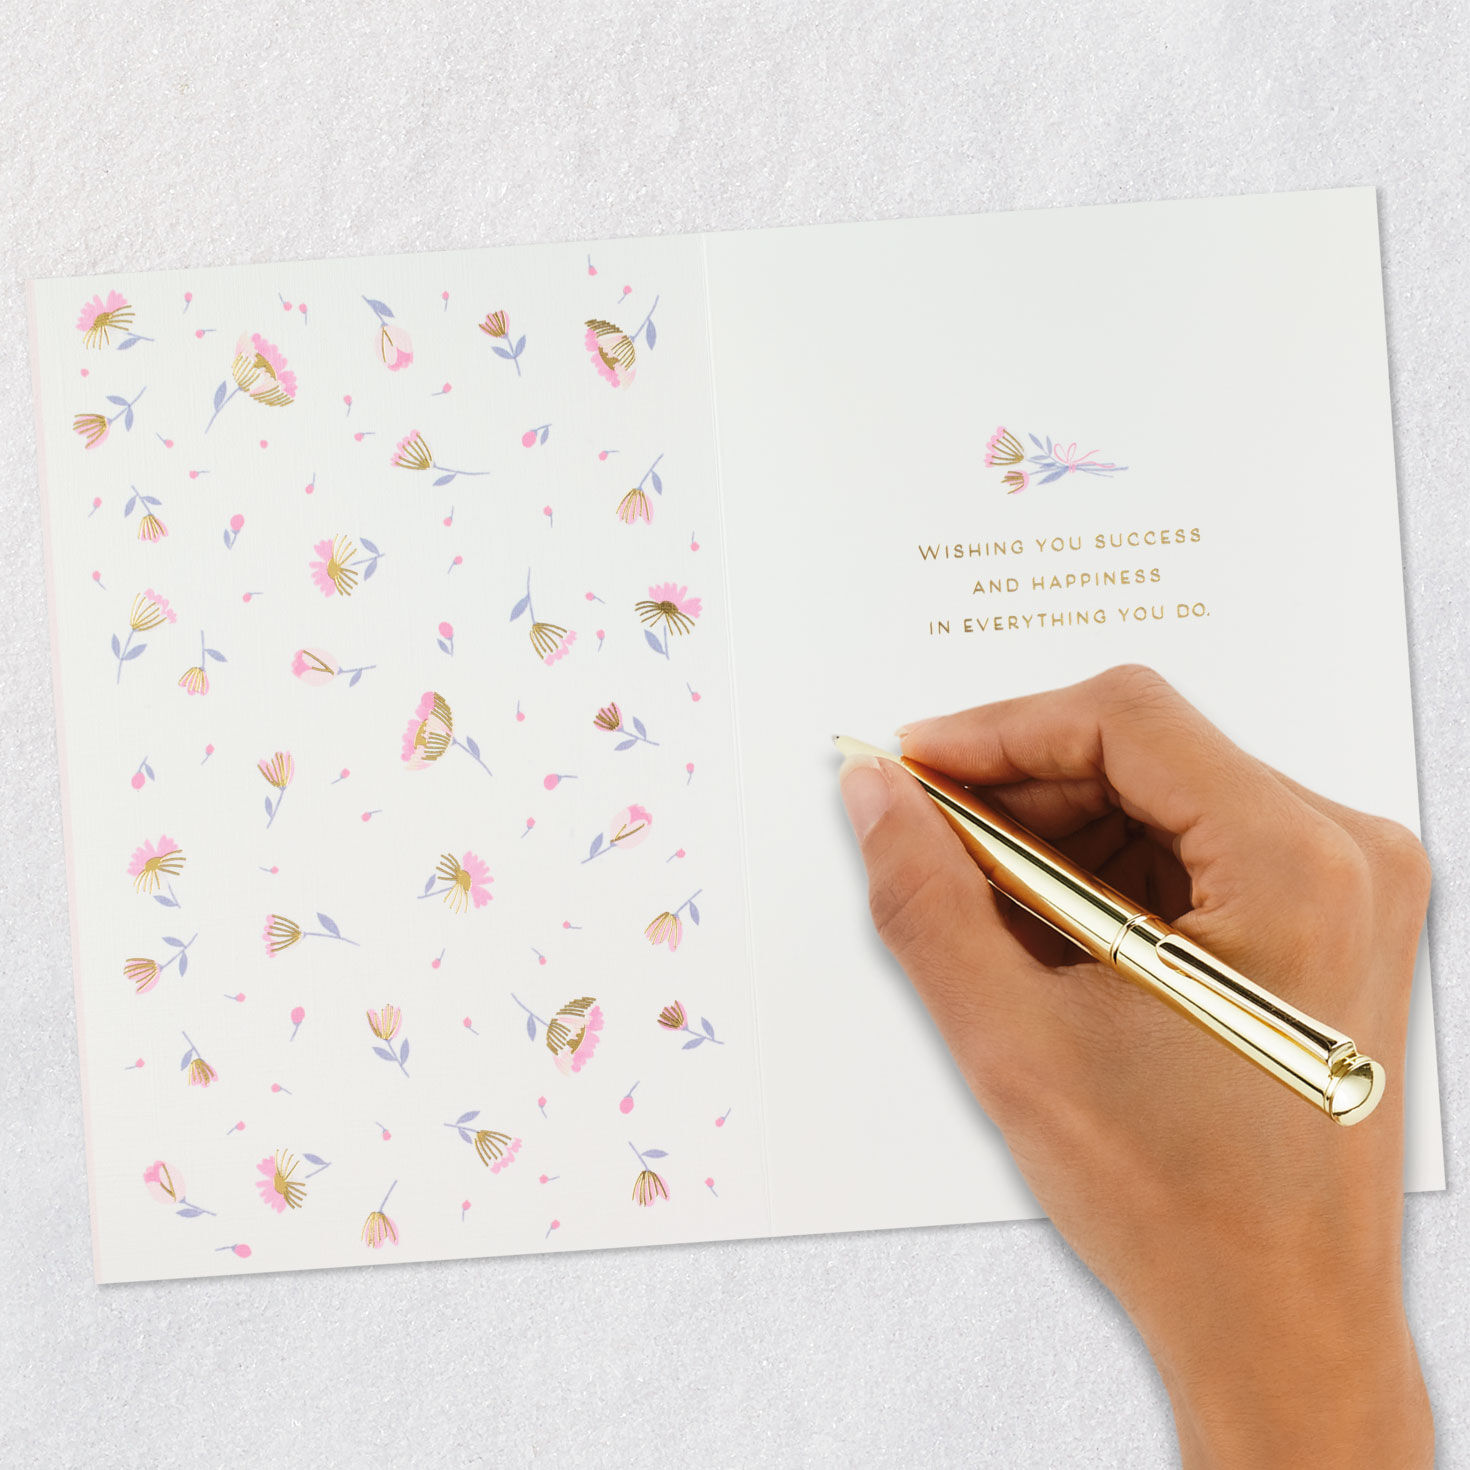 WISHING YOU SUCCESS
AND HAPPINESS
IN EVERYTHING YOU DO.